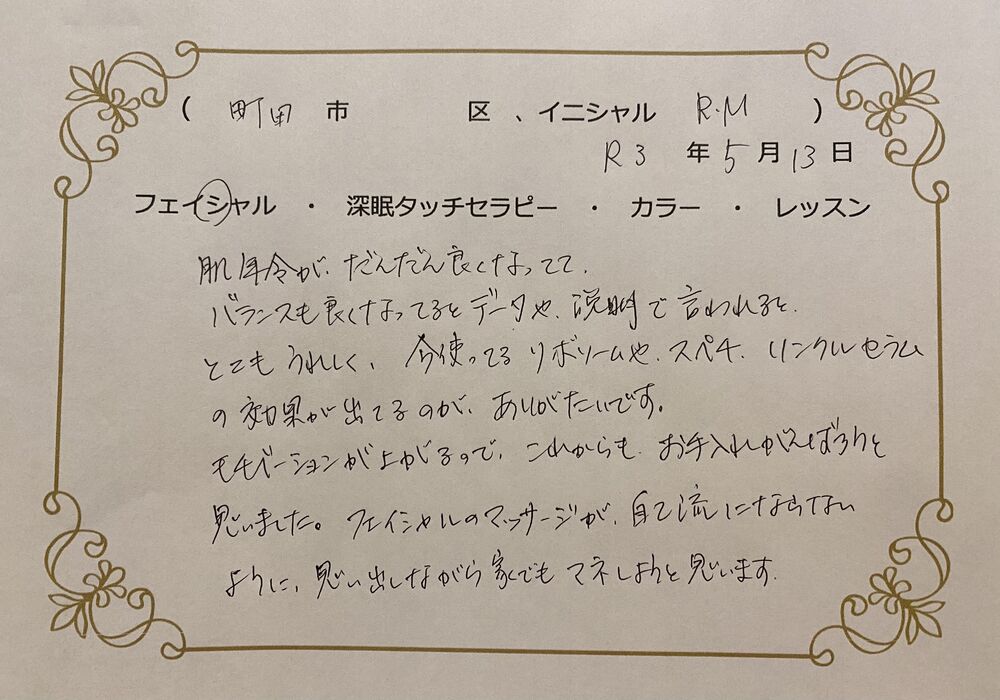 ( 町田 市 区 、イニシャル R.M )
R3 年 5 月 13 日
フェイシャル ・ 深眠タッチセラピー ・ カラー ・ レッスン
肌年令が、だんだん良くなってて、
バランスも良くなってるとデータや、説明で言われると、
とてもうれしく、今使ってるリポソームや、スペチ、リンクルセラム
の効果が出てるのが、ありがたいです。
モチベーションが上がるので、これからも、お手入れがんばろうと
思いました。フェイシャルのマッサージが、自己流にならない
ように、思い出しながら家でもマネしようと思います。